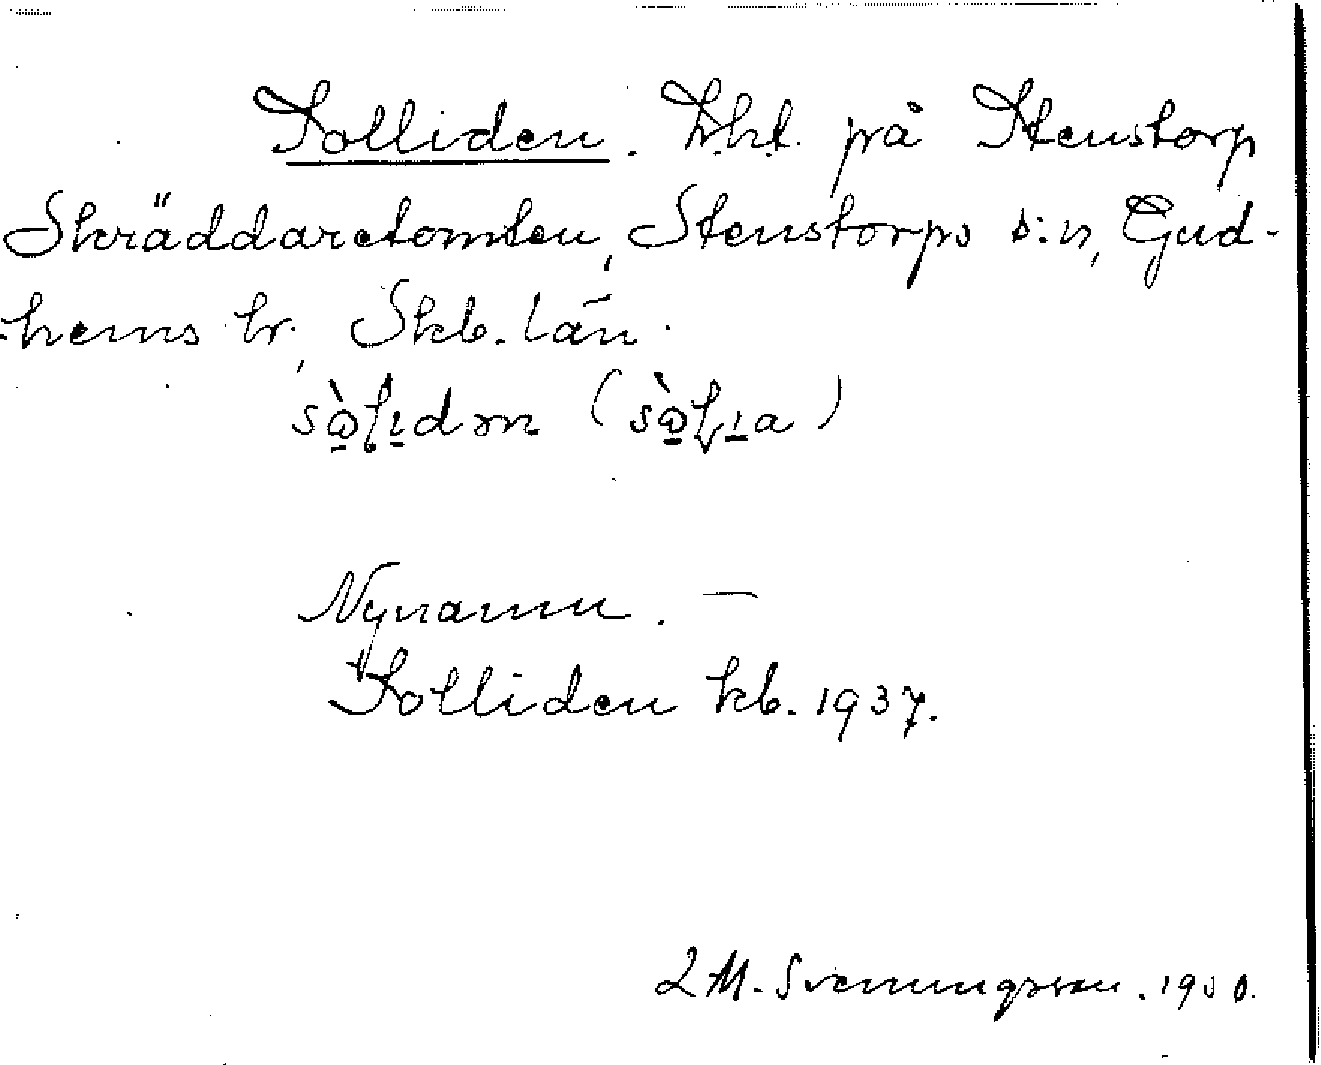 Solliden. Lht. på Stenstorp
Skräddaretomten, Stenstorps s:n, Gud-
hems hr, Skb. län.
Nynamn. —
Solliden kb. 1937.
Svenningsson. 1930.